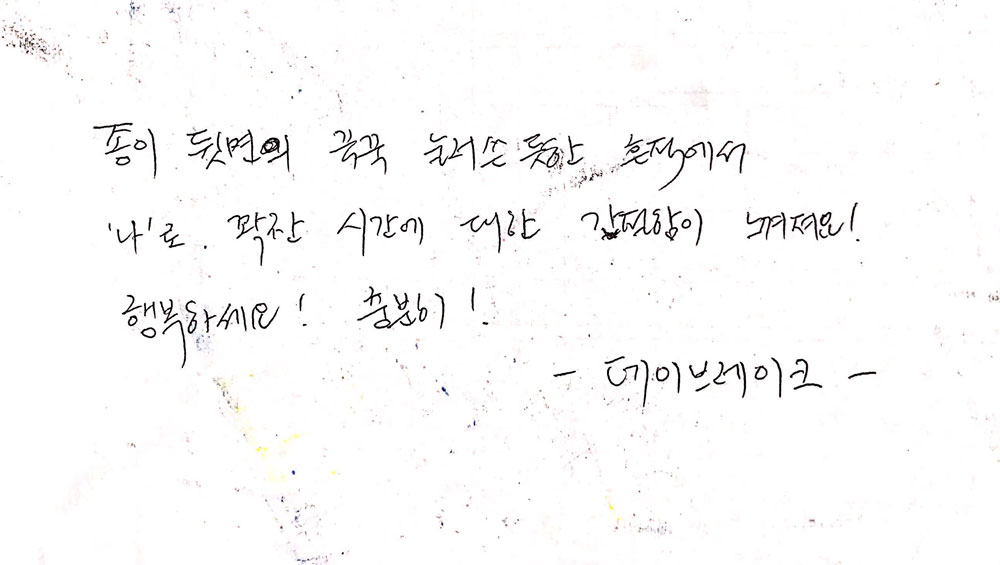 종이 뒷면의 꾹꾹 눌러쓴 듯한 흔적에서
'나'로 꽉찬 시간에 대한 간절함이 느껴져요!
행복하세요! 충분히!
- 데이브레이크 -